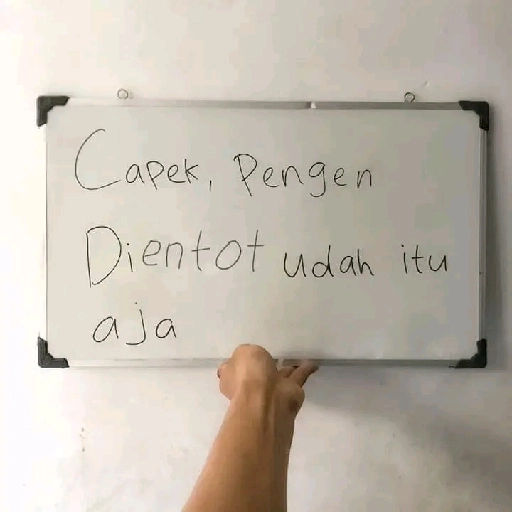 Capek, Pengen
Dientot udah itu
aja